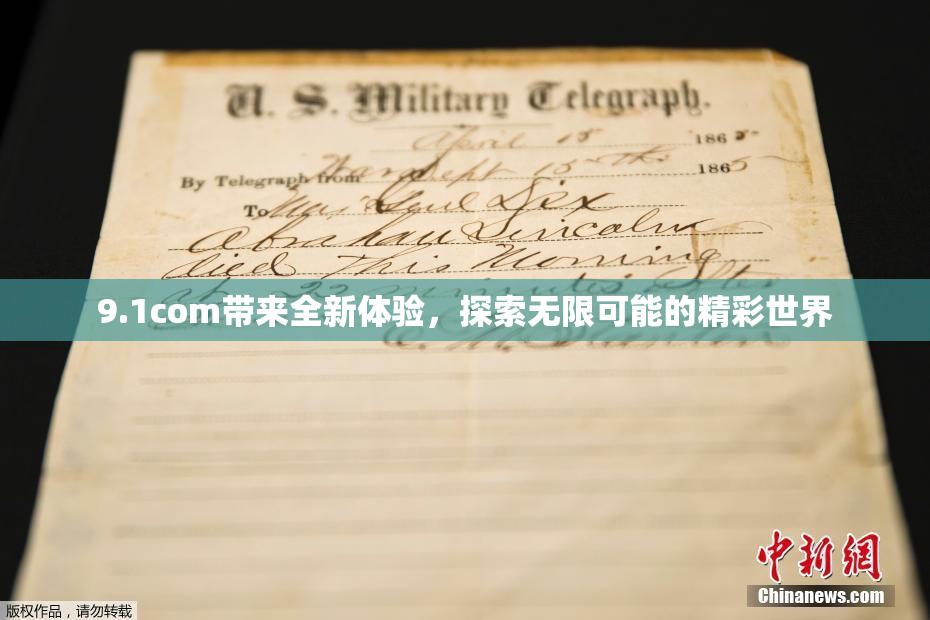 U. S. Military Telegraph.
April 15 1865
By Telegraph from War Dept 15th 1865
To Maj Genl Dix
Abraham Lincoln
died This Morning
at 22 minutes after
9.1com带来全新体验，探索无限可能的精彩世界
E. M. Stanton
中新网
Chinanews.com
版权作品，请勿转载